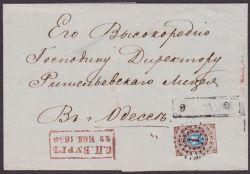 Его Высокородию
Господину Директору
Ришельевскаго Лицея
Въ г. Одессѣ.
С.П.БУРГЪ
1858